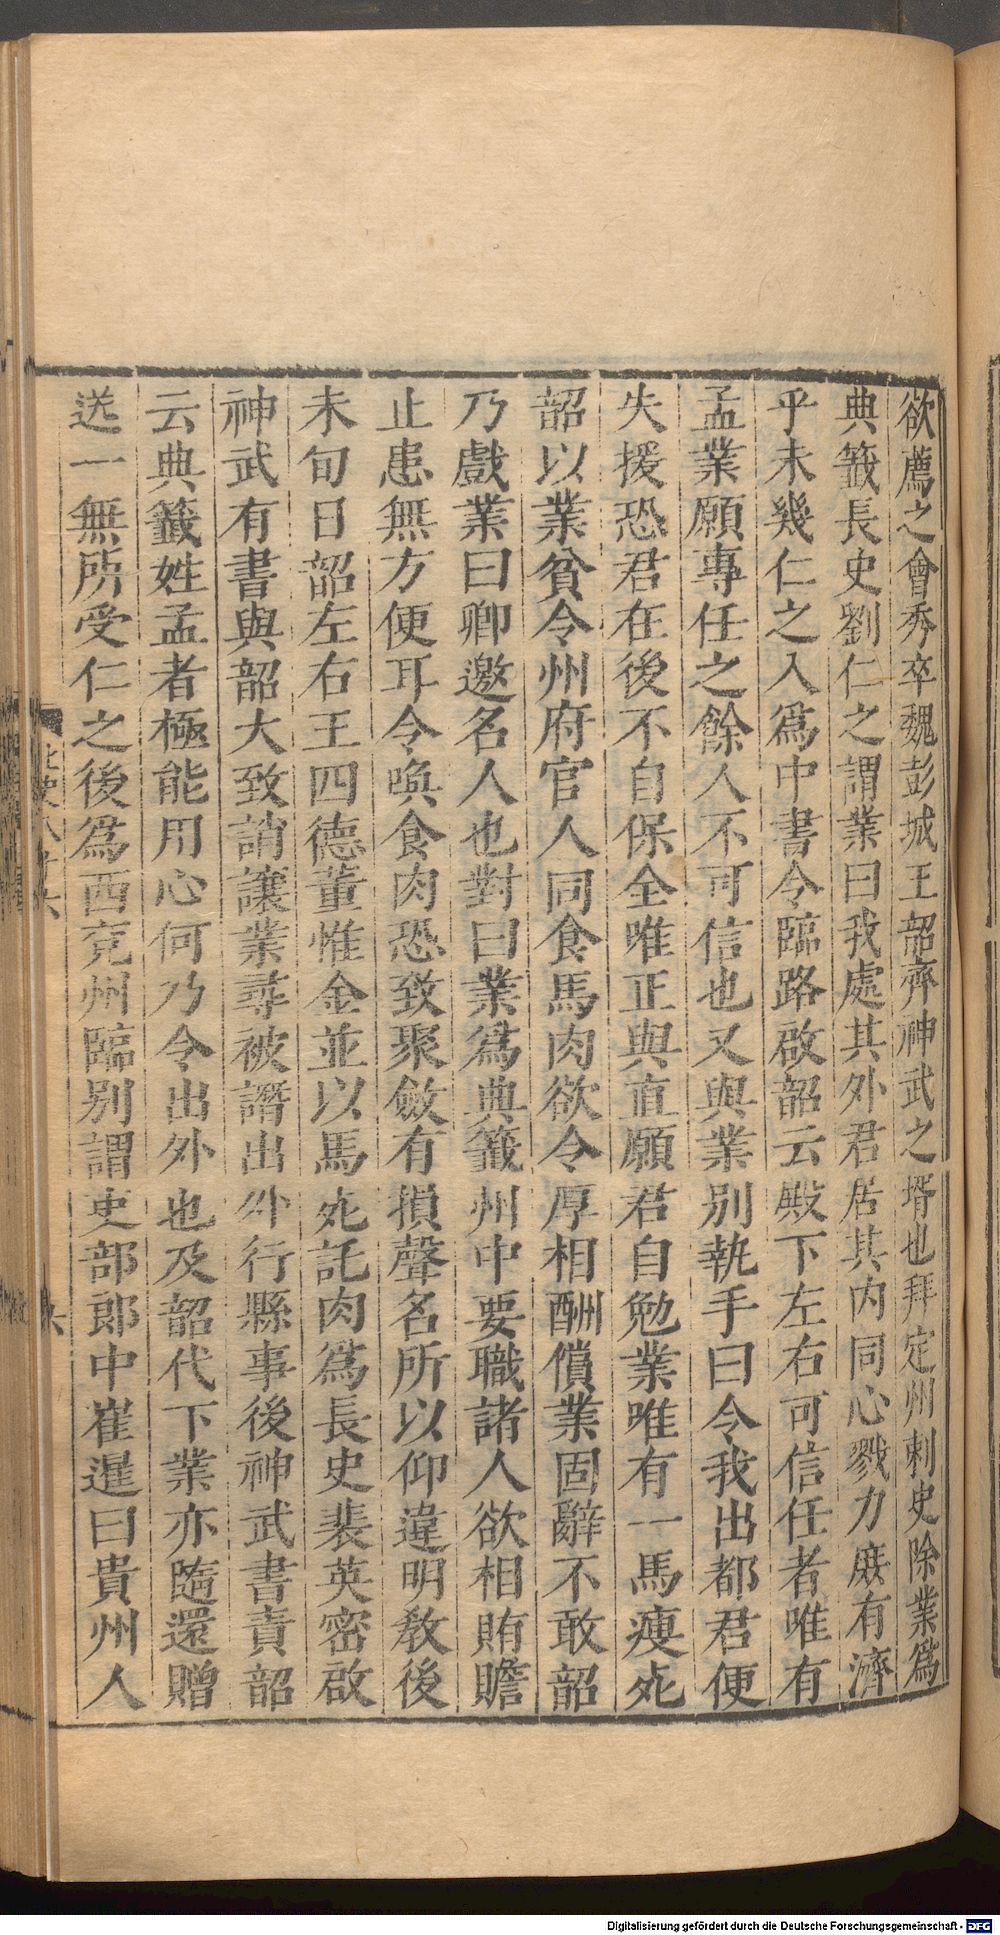 欲薦之會秀卒魏彭城王韶齊神武之壻也拜定州刺史除業爲
典籖長史劉仁之謂業曰我處其外君居其内同心戮力庶有濟
乎未幾仁之入爲中書令臨路啟韶云殿下左右可信任者唯有
孟業願專任之餘人不可信也又與業别執手曰今我出都君便
失援恐君在後不自保全唯正與直願君自勉業唯有一馬瘦死
韶以業貧令州府官人同食馬肉欲令厚相酬償業固辭不敢韶
乃戲業曰卿邀名人也對曰業爲典籖州中要職諸人欲相賄贍
止患無方便耳今喚食肉恐致聚斂有損聲名所以仰違明教後
未旬日韶左右王四德董惟金並以馬死託肉爲長史裴英密啟
神武有書與韶大致誚讓業尋被譖出外行縣事後神武書責韶
云典籖姓孟者極能用心何乃令出外也及韶代下業亦隨還贈
送一無所受仁之後爲西兖州臨别謂吏部郎中崔暹曰貴州人
北史八十六
六
Digitalisierung gefördert durch die Deutsche Forschungsgemeinschaft - DFG